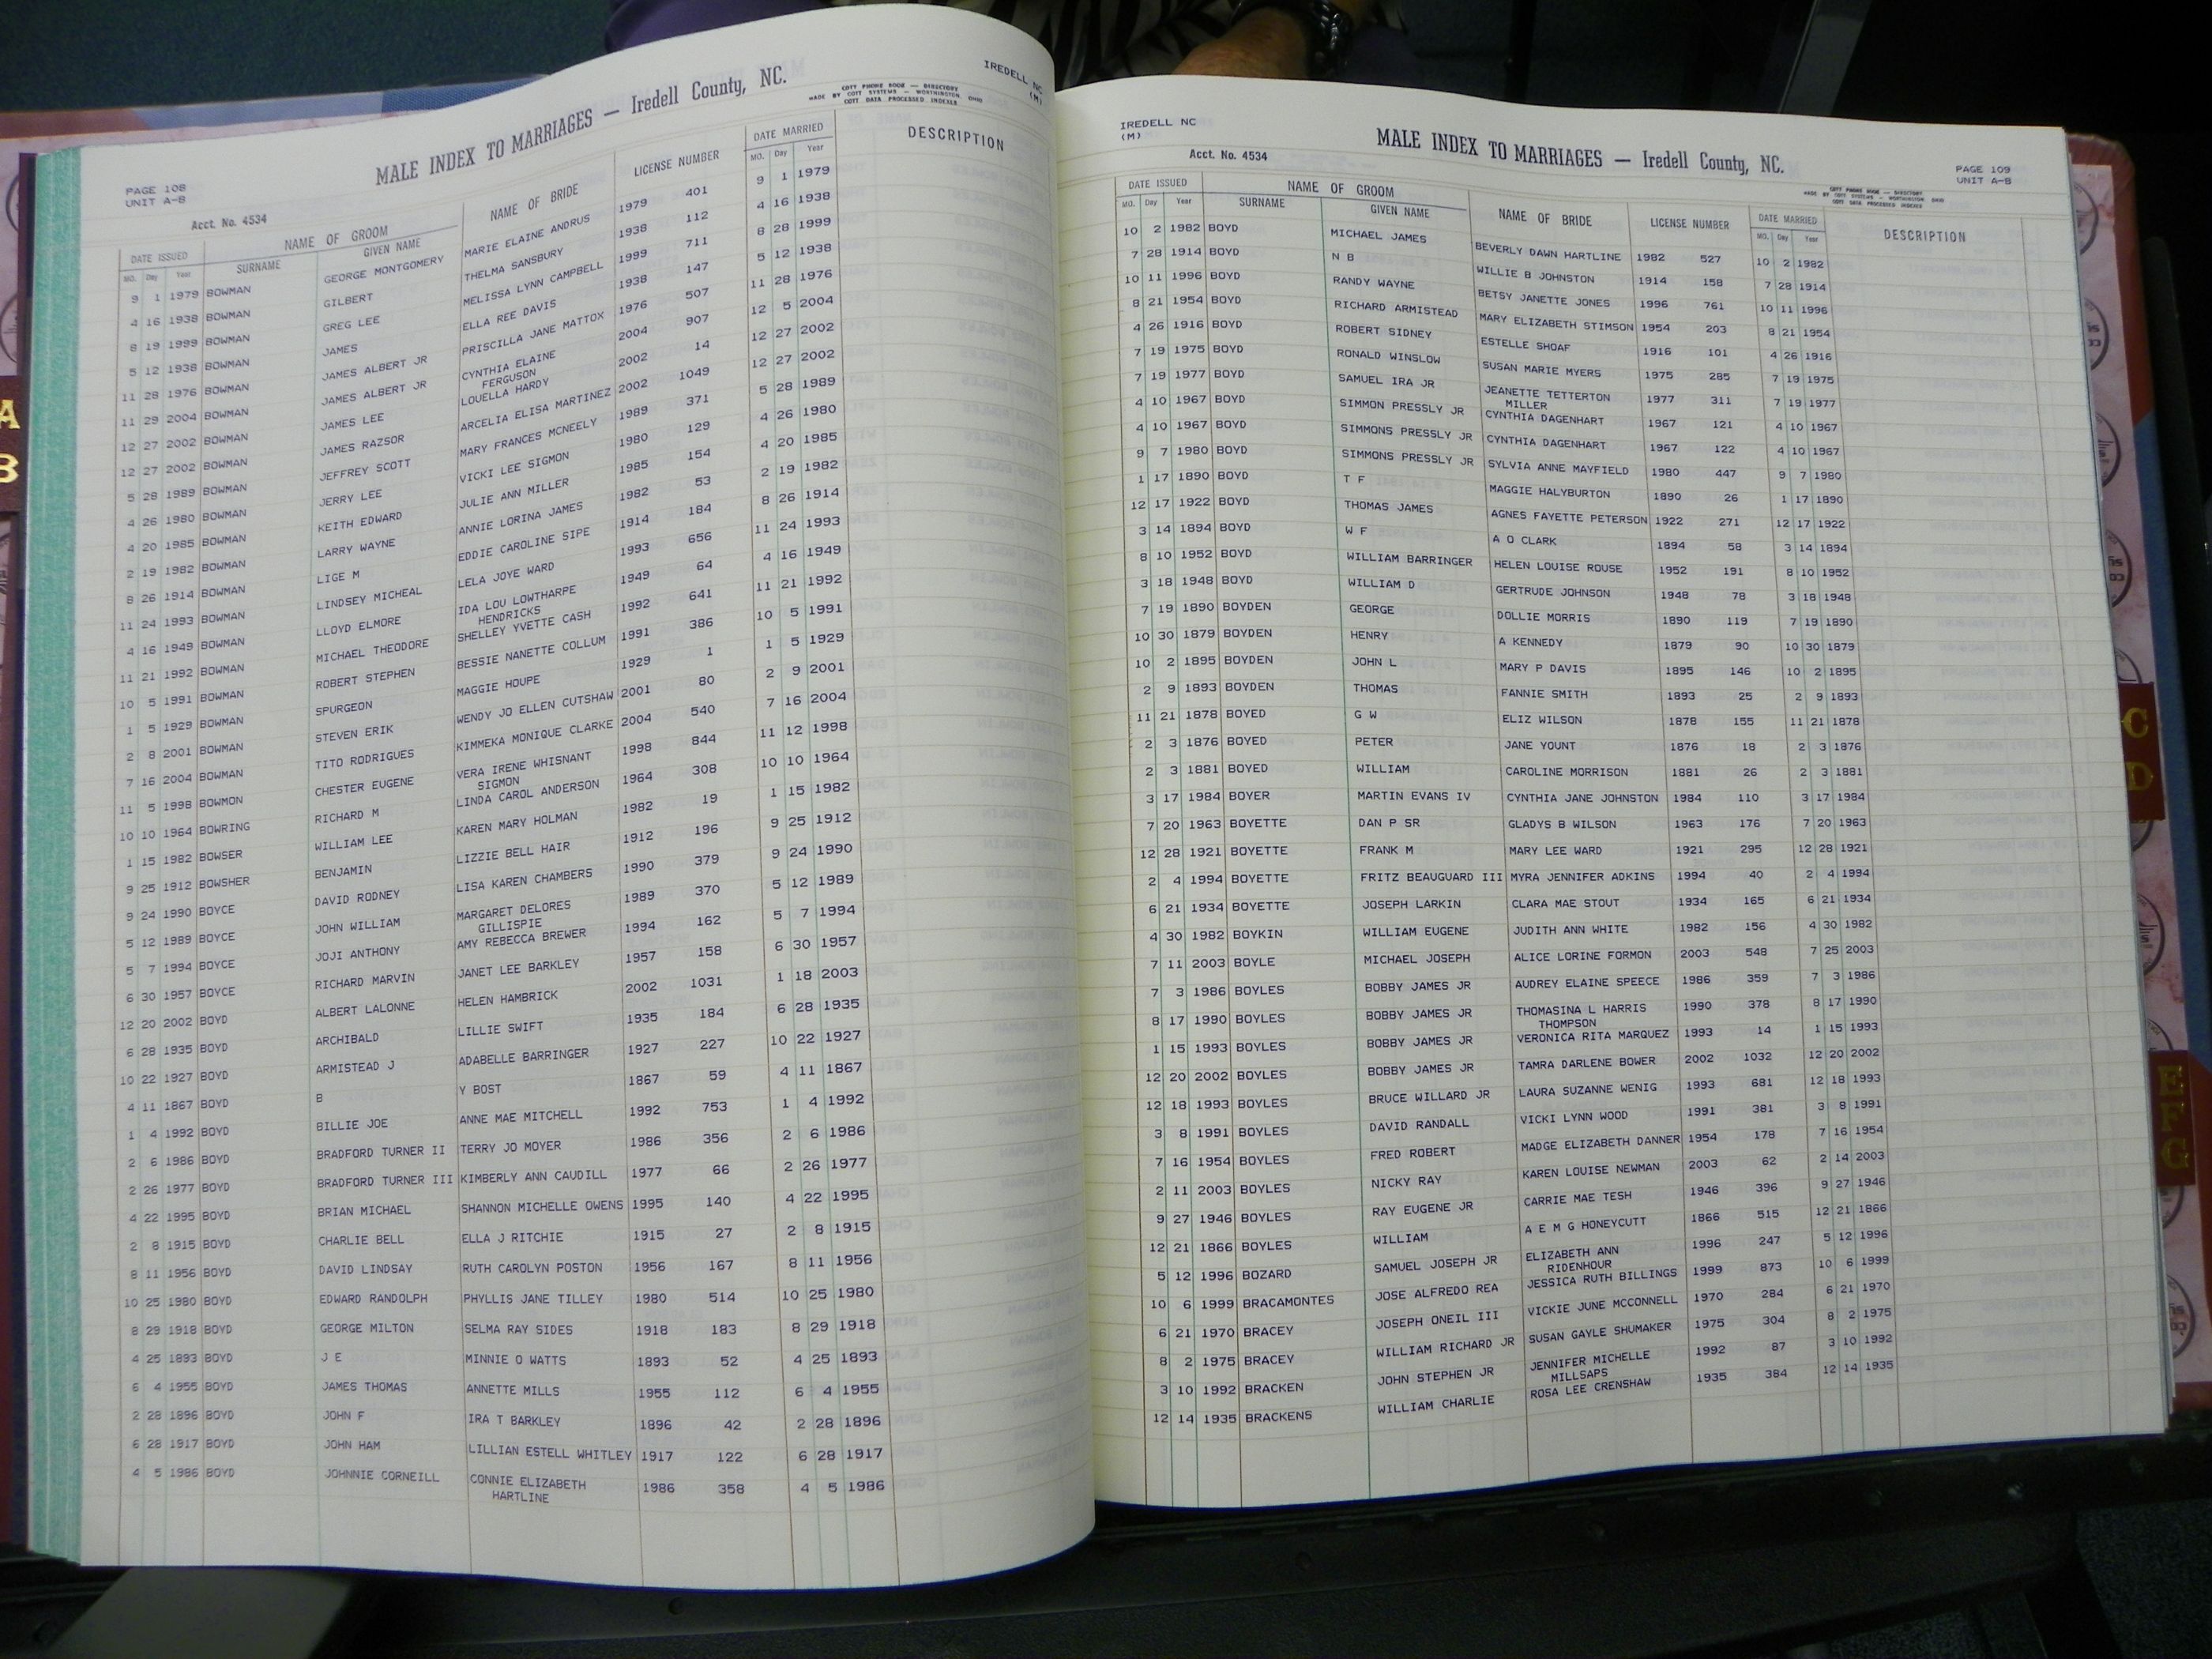 PAGE 108
UNIT A-B
MALE INDEX TO MARRIAGES — Iredell County, NC.
IREDELL NC
(M)
COTT PHONE BOOK — DIRECTORY
MADE BY COTT SYSTEMS — WORTHINGTON, OHIO
COTT DATA PROCESSED INDEXES
Acct. No. 4534
DATE ISSUED NAME OF GROOM NAME OF BRIDE LICENSE NUMBER DATE MARRIED DESCRIPTION
MO. Day Year SURNAME GIVEN NAME MO. Day Year
9 1 1979 BOWMAN GEORGE MONTGOMERY MARIE ELAINE ANDRUS 1979 401 9 1 1979
4 16 1938 BOWMAN GILBERT THELMA SANSBURY 1938 112 4 16 1938
8 19 1999 BOWMAN GREG LEE MELISSA LYNN CAMPBELL 1999 711 8 28 1999
5 12 1938 BOWMAN JAMES ELLA REE DAVIS 1938 147 5 12 1938
11 28 1976 BOWMAN JAMES ALBERT JR PRISCILLA JANE MATTOX 1976 507 11 28 1976
11 29 2004 BOWMAN JAMES ALBERT JR CYNTHIA ELAINE 2004 907 12 5 2004
FERGUSON
12 27 2002 BOWMAN JAMES LEE LOUELLA HARDY 2002 14 12 27 2002
12 27 2002 BOWMAN JAMES RAZSOR ARCELIA ELISA MARTINEZ 2002 1049 12 27 2002
5 28 1989 BOWMAN JEFFREY SCOTT MARY FRANCES MCNEELY 1989 371 5 28 1989
4 26 1980 BOWMAN JERRY LEE VICKI LEE SIGMON 1980 129 4 26 1980
4 20 1985 BOWMAN KEITH EDWARD JULIE ANN MILLER 1985 154 4 20 1985
2 19 1982 BOWMAN LARRY WAYNE ANNIE LORINA JAMES 1982 53 2 19 1982
8 26 1914 BOWMAN LIGE M EDDIE CAROLINE SIPE 1914 184 8 26 1914
11 24 1993 BOWMAN LINDSEY MICHEAL LELA JOYE WARD 1993 656 11 24 1993
4 16 1949 BOWMAN LLOYD ELMORE IDA LOU LOWTHARPE 1949 64 4 16 1949
HENDRICKS
11 21 1992 BOWMAN MICHAEL THEODORE SHELLEY YVETTE CASH 1992 641 11 21 1992
10 5 1991 BOWMAN ROBERT STEPHEN BESSIE NANETTE COLLUM 1991 386 10 5 1991
1 5 1929 BOWMAN SPURGEON MAGGIE HOUPE 1929 1 1 5 1929
2 8 2001 BOWMAN STEVEN ERIK WENDY JO ELLEN CUTSHAW 2001 80 2 9 2001
7 16 2004 BOWMAN TITO RODRIGUES KIMMEKA MONIQUE CLARKE 2004 540 7 16 2004
11 5 1998 BOWMON CHESTER EUGENE VERA IRENE WHISNANT 1998 844 11 12 1998
SIGMON
10 10 1964 BOWRING RICHARD M LINDA CAROL ANDERSON 1964 308 10 10 1964
1 15 1982 BOWSER WILLIAM LEE KAREN MARY HOLMAN 1982 19 1 15 1982
9 25 1912 BOWSHER BENJAMIN LIZZIE BELL HAIR 1912 196 9 25 1912
9 24 1990 BOYCE DAVID RODNEY LISA KAREN CHAMBERS 1990 379 9 24 1990
5 12 1989 BOYCE JOHN WILLIAM MARGARET DELORES 1989 370 5 12 1989
GILLISPIE
5 7 1994 BOYCE JOJI ANTHONY AMY REBECCA BREWER 1994 162 5 7 1994
6 30 1957 BOYCE RICHARD MARVIN JANET LEE BARKLEY 1957 158 6 30 1957
12 20 2002 BOYD ALBERT LALONNE HELEN HAMBRICK 2002 1031 1 18 2003
6 28 1935 BOYD ARCHIBALD LILLIE SWIFT 1935 184 6 28 1935
10 22 1927 BOYD ARMISTEAD J ADABELLE BARRINGER 1927 227 10 22 1927
4 11 1867 BOYD B Y BOST 1867 59 4 11 1867
1 4 1992 BOYD BILLIE JOE ANNE MAE MITCHELL 1992 753 1 4 1992
2 6 1986 BOYD BRADFORD TURNER II TERRY JO MOYER 1986 356 2 6 1986
2 26 1977 BOYD BRADFORD TURNER III KIMBERLY ANN CAUDILL 1977 66 2 26 1977
4 22 1995 BOYD BRIAN MICHAEL SHANNON MICHELLE OWENS 1995 140 4 22 1995
2 8 1915 BOYD CHARLIE BELL ELLA J RITCHIE 1915 27 2 8 1915
8 11 1956 BOYD DAVID LINDSAY RUTH CAROLYN POSTON 1956 167 8 11 1956
10 25 1980 BOYD EDWARD RANDOLPH PHYLLIS JANE TILLEY 1980 514 10 25 1980
8 29 1918 BOYD GEORGE MILTON SELMA RAY SIDES 1918 183 8 29 1918
4 25 1893 BOYD J E MINNIE O WATTS 1893 52 4 25 1893
6 4 1955 BOYD JAMES THOMAS ANNETTE MILLS 1955 112 6 4 1955
2 28 1896 BOYD JOHN F IRA T BARKLEY 1896 42 2 28 1896
6 28 1917 BOYD JOHN HAM LILLIAN ESTELL WHITLEY 1917 122 6 28 1917
4 5 1986 BOYD JOHNNIE CORNEILL CONNIE ELIZABETH 1986 358 4 5 1986
HARTLINE
IREDELL NC
(M)
MALE INDEX TO MARRIAGES — Iredell County, NC.
PAGE 109
UNIT A-B
Acct. No. 4534
COTT PHONE BOOK — DIRECTORY
MADE BY COTT SYSTEMS — WORTHINGTON, OHIO
COTT DATA PROCESSED INDEXES
DATE ISSUED NAME OF GROOM NAME OF BRIDE LICENSE NUMBER DATE MARRIED DESCRIPTION
MO. Day Year SURNAME GIVEN NAME MO. Day Year
10 2 1982 BOYD MICHAEL JAMES BEVERLY DAWN HARTLINE 1982 527 10 2 1982
7 28 1914 BOYD N B WILLIE B JOHNSTON 1914 158 7 28 1914
10 11 1996 BOYD RANDY WAYNE BETSY JANETTE JONES 1996 761 10 11 1996
8 21 1954 BOYD RICHARD ARMISTEAD MARY ELIZABETH STIMSON 1954 203 8 21 1954
4 26 1916 BOYD ROBERT SIDNEY ESTELLE SHOAF 1916 101 4 26 1916
7 19 1975 BOYD RONALD WINSLOW SUSAN MARIE MYERS 1975 285 7 19 1975
7 19 1977 BOYD SAMUEL IRA JR JEANETTE TETTERTON 1977 311 7 19 1977
MILLER
4 10 1967 BOYD SIMMON PRESSLY JR CYNTHIA DAGENHART 1967 121 4 10 1967
4 10 1967 BOYD SIMMONS PRESSLY JR CYNTHIA DAGENHART 1967 122 4 10 1967
9 7 1980 BOYD SIMMONS PRESSLY JR SYLVIA ANNE MAYFIELD 1980 447 9 7 1980
1 17 1890 BOYD T F MAGGIE HALYBURTON 1890 26 1 17 1890
12 17 1922 BOYD THOMAS JAMES AGNES FAYETTE PETERSON 1922 271 12 17 1922
3 14 1894 BOYD W F A O CLARK 1894 58 3 14 1894
8 10 1952 BOYD WILLIAM BARRINGER HELEN LOUISE ROUSE 1952 191 8 10 1952
3 18 1948 BOYD WILLIAM D GERTRUDE JOHNSON 1948 78 3 18 1948
7 19 1890 BOYDEN GEORGE DOLLIE MORRIS 1890 119 7 19 1890
10 30 1879 BOYDEN HENRY A KENNEDY 1879 90 10 30 1879
10 2 1895 BOYDEN JOHN L MARY P DAVIS 1895 146 10 2 1895
2 9 1893 BOYDEN THOMAS FANNIE SMITH 1893 25 2 9 1893
11 21 1878 BOYED G W ELIZ WILSON 1878 155 11 21 1878
2 3 1876 BOYED PETER JANE YOUNT 1876 18 2 3 1876
2 3 1881 BOYED WILLIAM CAROLINE MORRISON 1881 26 2 3 1881
3 17 1984 BOYER MARTIN EVANS IV CYNTHIA JANE JOHNSTON 1984 110 3 17 1984
7 20 1963 BOYETTE DAN P SR GLADYS B WILSON 1963 176 7 20 1963
12 28 1921 BOYETTE FRANK M MARY LEE WARD 1921 295 12 28 1921
2 4 1994 BOYETTE FRITZ BEAUGUARD III MYRA JENNIFER ADKINS 1994 40 2 4 1994
6 21 1934 BOYETTE JOSEPH LARKIN CLARA MAE STOUT 1934 165 6 21 1934
4 30 1982 BOYKIN WILLIAM EUGENE JUDITH ANN WHITE 1982 156 4 30 1982
7 11 2003 BOYLE MICHAEL JOSEPH ALICE LORINE FORMON 2003 548 7 25 2003
7 3 1986 BOYLES BOBBY JAMES JR AUDREY ELAINE SPEECE 1986 359 7 3 1986
8 17 1990 BOYLES BOBBY JAMES JR THOMASINA L HARRIS 1990 378 8 17 1990
THOMPSON
1 15 1993 BOYLES BOBBY JAMES JR VERONICA RITA MARQUEZ 1993 14 1 15 1993
12 20 2002 BOYLES BOBBY JAMES JR TAMRA DARLENE BOWER 2002 1032 12 20 2002
12 18 1993 BOYLES BRUCE WILLARD JR LAURA SUZANNE WENIG 1993 681 12 18 1993
3 8 1991 BOYLES DAVID RANDALL VICKI LYNN WOOD 1991 381 3 8 1991
7 16 1954 BOYLES FRED ROBERT MADGE ELIZABETH DANNER 1954 178 7 16 1954
2 11 2003 BOYLES NICKY RAY KAREN LOUISE NEWMAN 2003 62 2 14 2003
9 27 1946 BOYLES RAY EUGENE JR CARRIE MAE TESH 1946 396 9 27 1946
12 21 1866 BOYLES WILLIAM A E M G HONEYCUTT 1866 515 12 21 1866
5 12 1996 BOZARD SAMUEL JOSEPH JR ELIZABETH ANN 1996 247 5 12 1996
RIDENHOUR
10 6 1999 BRACAMONTES JOSE ALFREDO REA JESSICA RUTH BILLINGS 1999 873 10 6 1999
6 21 1970 BRACEY JOSEPH ONEIL III VICKIE JUNE MCCONNELL 1970 284 6 21 1970
8 2 1975 BRACEY WILLIAM RICHARD JR SUSAN GAYLE SHUMAKER 1975 304 8 2 1975
3 10 1992 BRACKEN JOHN STEPHEN JR JENNIFER MICHELLE 1992 87 3 10 1992
MILLSAPS
12 14 1935 BRACKENS WILLIAM CHARLIE ROSA LEE CRENSHAW 1935 384 12 14 1935
A
B
C
D
E
F
G